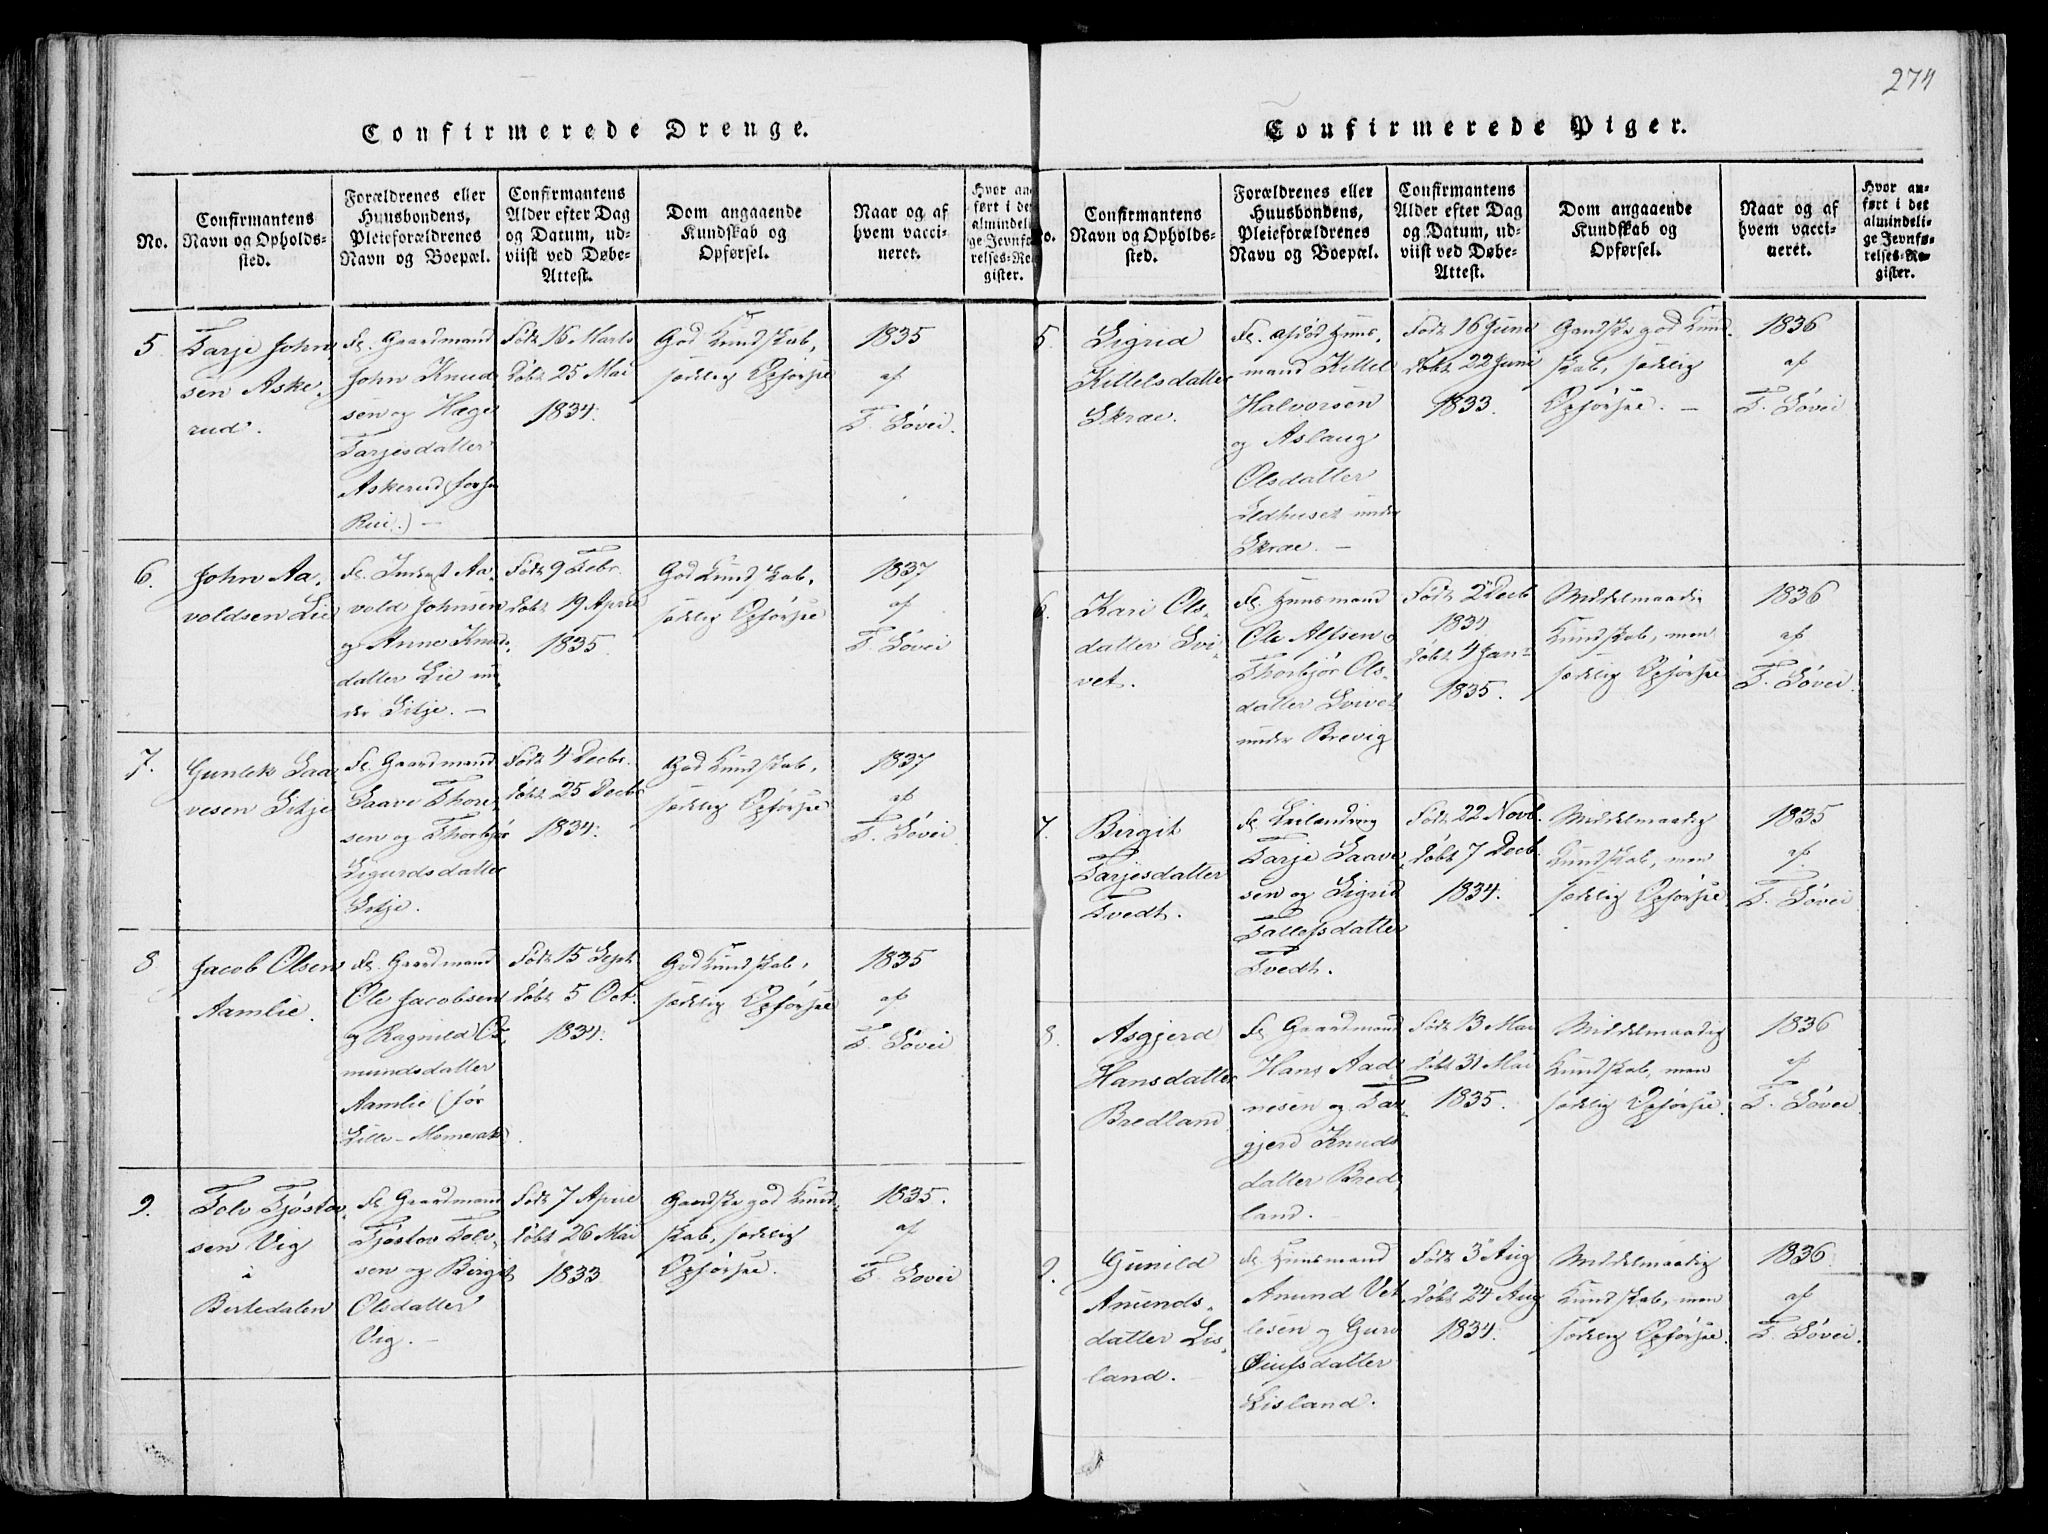 274
Confirmerede Drenge.
No.
Confirmantens
Navn og Opholds-
sted.
Forældrenes eller
Huusbondens,
Pleieforældrenes
Navn og Boepæl.
Confirmantens
Alder efter Dag
og Datum, ud-
viist ved Døbe-
Attest.
Dom angaaende
Kundskab og
Opførsel.
Naar og af
hvem vacci-
neret.
Hvor an-
ført i de
almindeli
ge Jevnfø
relses-Re
gister.
5.
Tarje John
sen Aske,
rud.
F. Gaardmand
John Knud
sen og Hæge
Tarjesdatter
Askerud (forhn
Rui.) —
Født 16 Marts
døbt 25 Mai
1834.
God Kundskab,
sædelig Opførsel
1835
af
T. Løvei.
6.
John Aa,
voldsen Lie
F. Inderst Aa,
vold Johnsen
og Anne Knuds,
datter Lie un
der Sitje. —
Født 9 Febr.
døbt 19 April
1835.
God Kundskab,
sædelig Opførsel
1837
af
T. Løvei
7.
Gunlek Saa
vesen Sitje
F. Gaardmand
Saave Thore,
sen og Thorbjør
Sigurdsdatter
Sitje.
Født 4 Decbr.
døbt 25 Decbr
1834.
God Kundskab,
sædelig Opførsel
1837
af
T. Løvei.
8
Jacob Olsen
Aamlie.
F. Gaardmand
Ole Jacobsen
og Ragnild Os,
mundsdatter
Aamlie (før
Lille-Momrak)
Født 15 Sept.
døbt 5 Oct.
1834.
God Kundskab,
sædelig Opførsel
1835
af
T. Løvei
9.
Tolv Tjøstov,
sen Vig
i
Birtedalen
F. Gaardmand
Tjøstov Tolv,
sen og Birgit
Olsdatter
Vig. —
Født 7 April
døbt 26 Mai
1833
Gandske god Kund,
skab, sædelig
Opførsel.
1835.
af
T. Løvei
Confirmerede Piger.
No.
Confirmantens
Navn og Opholds-
sted.
Forældrenes eller
Huusbondens,
Pleieforældrenes
Navn og Boepæl.
Confirmantens
Alder efter Dag
og Datum, ud-
viist ved Døbe-
Attest.
Dom angaaende
Kundskab og
Opførsel.
Naar og af
hvem vacci-
neret.
Hvor an-
ført i det
almindeli-
ge Jevnfø-
relses-Re-
gister.
5.
Sigrid
Kittelsdatter
Skrae.
F. afdød Huus
mand Kittel
Halvorsen
og Aslaug
Olsdatter
Eldhuset under
Skrae. —
Født 16 Juni
døbt 22 Juni
1833.
Gandske god Kund,
skab, sædelig
Opførsel. —
1836
af
T. Løvei
6.
Kari Ols,
datter Svi,
vet.
F. Huusmand
Ole Alfsen og
Thorbjør Ols,
datter Svivet
under Brevig
Født 2 Decb
1834
døbt 4 Jan.
1835.
Middelmaadig
Kundskab, men
sædelig Opførsel
1836
af
T. Løvei.
7.
Birgit
Tarjesdatter
Tvedt.
F. Leilænding
Tarje Saave,
sen og Sigrid
Tallefsdatter
Tvedt.
Født 22 Novb.
døbt 7 Decb.
1834.
Middelmaadig
Kundskab, men
sædelig Opførsel
1835
af
T. Løvei
8.
Asgjerd
Hansdatter
Bredland
F. Gaardmand
Hans Aad,
nesen og Tar,
gjerd Knuds
datter Bred,
land. —
Født 13 Mai
døbt 31 Mai
1835.
Middelmaadig
Kundskab, men
sædelig Opførsel.
1836
af
T. Løvei
9.
Gunild
Anunds,
datter Lis,
land.
F. Huusmand
Anund Vet
lesen og Guro
Øiufsdatter
Lisland.
Født 3 Aug
døbt 24 Aug
1834.
Middelmaadig
Kundskab, men
sædelig Opførsel.
1836
af
T. Løvei.